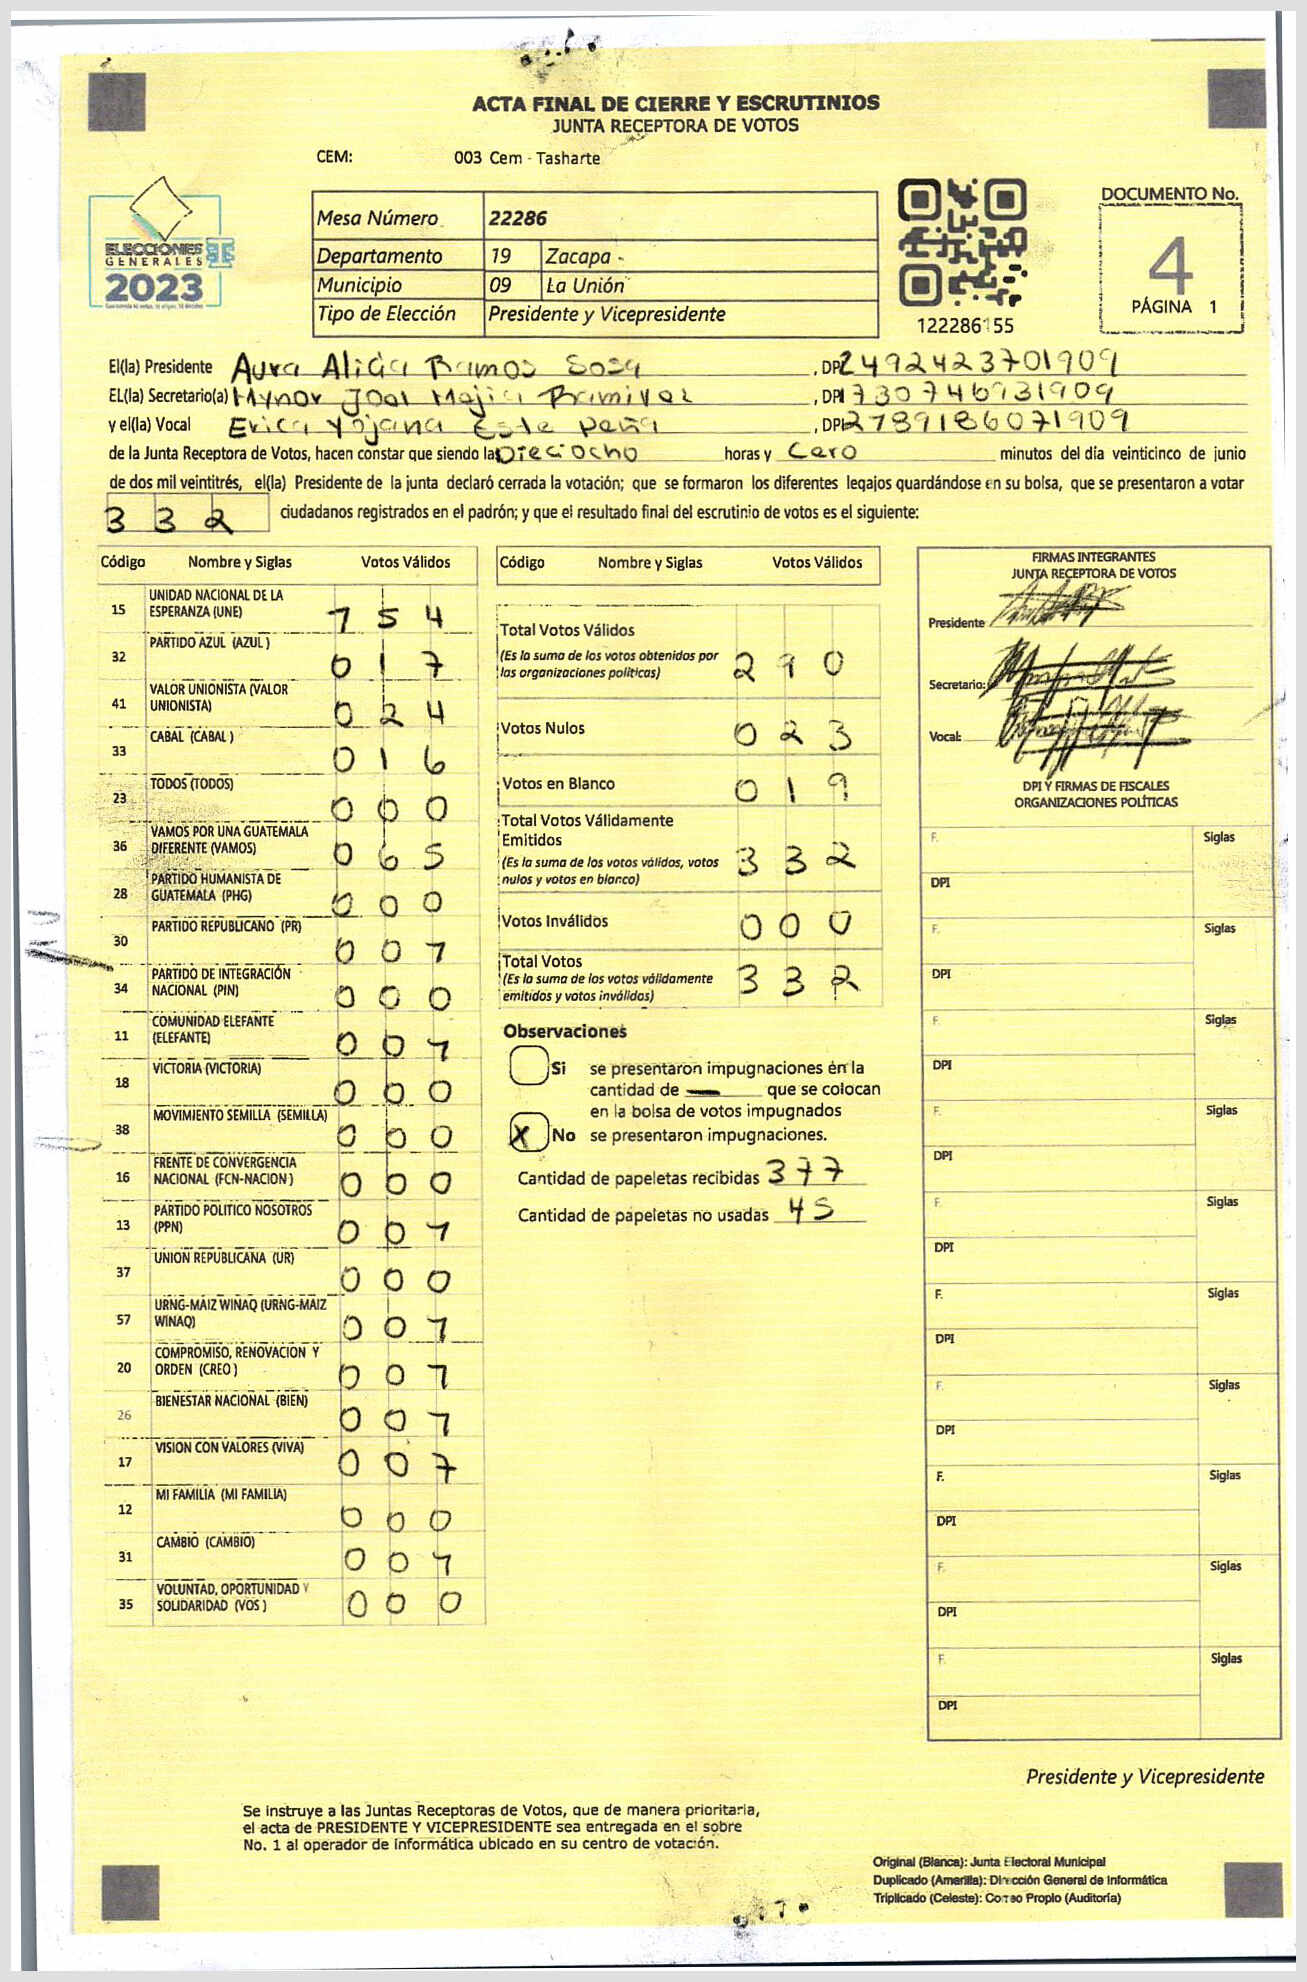 ACTA FINAL DE CIERRE Y ESCRUTINIOS
JUNTA RECEPTORA DE VOTOS
CEM: 003 Cem - Tasharte
ELECCIONES
GENERALES
2023
Mesa Número 22286
Departamento 19 Zacapa
Municipio 09 La Unión
Tipo de Elección Presidente y Vicepresidente
122286155
DOCUMENTO No.
4
PÁGINA 1
El(la) Presidente Aura Alicia Ramos Sosa , DPI 2492423701909
EL(la) Secretario(a) Mynor Joel Mejia Ramirez , DPI 1730746931909
y el(la) Vocal Erica Yojana Este Peña , DPI 2789186071909
de la Junta Receptora de Votos, hacen constar que siendo las Dieciocho horas y Cero minutos del día veinticinco de junio
de dos mil veintitrés, el(la) Presidente de la junta declaró cerrada la votación; que se formaron los diferentes legajos guardándose en su bolsa, que se presentaron a votar
3 3 2 ciudadanos registrados en el padrón; y que el resultado final del escrutinio de votos es el siguiente:
Código Nombre y Siglas Votos Válidos
15 UNIDAD NACIONAL DE LA
ESPERANZA (UNE) 1 5 4
32 PARTIDO AZUL (AZUL ) 0 1 7
41 VALOR UNIONISTA (VALOR
UNIONISTA) 0 2 4
33 CABAL (CABAL ) 0 1 6
23 TODOS (TODOS) 0 0 0
36 VAMOS POR UNA GUATEMALA
DIFERENTE (VAMOS) 0 6 5
28 PARTIDO HUMANISTA DE
GUATEMALA (PHG) 0 0 0
30 PARTIDO REPUBLICANO (PR) 0 0 1
34 PARTIDO DE INTEGRACIÓN
NACIONAL (PIN) 0 0 0
11 COMUNIDAD ELEFANTE
(ELEFANTE) 0 0 1
18 VICTORIA (VICTORIA) 0 0 0
38 MOVIMIENTO SEMILLA (SEMILLA) 0 0 0
16 FRENTE DE CONVERGENCIA
NACIONAL (FCN-NACION ) 0 0 0
13 PARTIDO POLITICO NOSOTROS
(PPN) 0 0 1
37 UNION REPUBLICANA (UR) 0 0 0
57 URNG-MAIZ WINAQ (URNG-MAIZ
WINAQ) 0 0 1
20 COMPROMISO, RENOVACION Y
ORDEN (CREO ) 0 0 1
26 BIENESTAR NACIONAL (BIEN) 0 0 1
17 VISION CON VALORES (VIVA) 0 0 7
12 MI FAMILIA (MI FAMILIA) 0 0 0
31 CAMBIO (CAMBIO) 0 0 1
35 VOLUNTAD, OPORTUNIDAD Y
SOLIDARIDAD (VOS ) 0 0 0
Código Nombre y Siglas Votos Válidos
Total Votos Válidos
(Es la suma de los votos obtenidos por
las organizaciones políticas) 2 9 0
Votos Nulos 0 2 3
Votos en Blanco 0 1 9
Total Votos Válidamente
Emitidos
(Es la suma de los votos válidos, votos
nulos y votos en blanco) 3 3 2
Votos Inválidos 0 0 0
Total Votos
(Es la suma de los votos válidamente
emitidos y votos inválidos) 3 3 2
Observaciones
Si se presentaron impugnaciones en la
cantidad de — que se colocan
en la bolsa de votos impugnados
X No se presentaron impugnaciones.
Cantidad de papeletas recibidas 377
Cantidad de papeletas no usadas 45
FIRMAS INTEGRANTES
JUNTA RECEPTORA DE VOTOS
Presidente
Secretario:
Vocal:
DPI Y FIRMAS DE FISCALES
ORGANIZACIONES POLÍTICAS
F. Siglas
DPI
F. Siglas
DPI
F. Siglas
DPI
F. Siglas
DPI
F. Siglas
DPI
F. Siglas
DPI
F. Siglas
DPI
F. Siglas
DPI
F. Siglas
DPI
F. Siglas
DPI
Presidente y Vicepresidente
Se instruye a las Juntas Receptoras de Votos, que de manera prioritaria,
el acta de PRESIDENTE Y VICEPRESIDENTE sea entregada en el sobre
No. 1 al operador de informática ubicado en su centro de votación.
Original (Blanca): Junta Electoral Municipal
Duplicado (Amarilla): Dirección General de Informática
Triplicado (Celeste): Correo Propio (Auditoría)